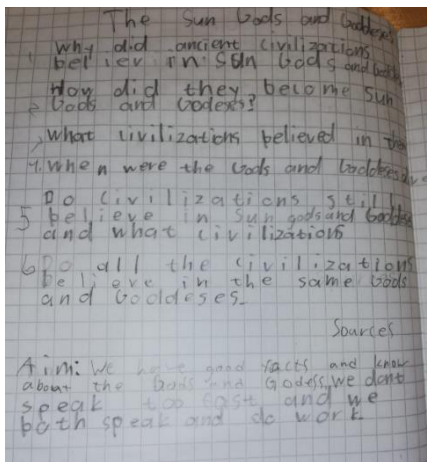 The Sun Gods and Goddeses
1 Why did ancient civilizations
believ in Sun Gods and
How did they become sun
2 Gods and Godeses?
3 What civilizations believed in
4. When were the Gods and Goddeses
Do civilizations still
5 believe in Sun gods and Goddes
and what civilizations
6 Do all the civilizations
believe in the same Gods
and Goddeses.
Sources
Aim: We have good facts and know
about the Gods and Godess, we dont
speak too fast and we
both speak and do work